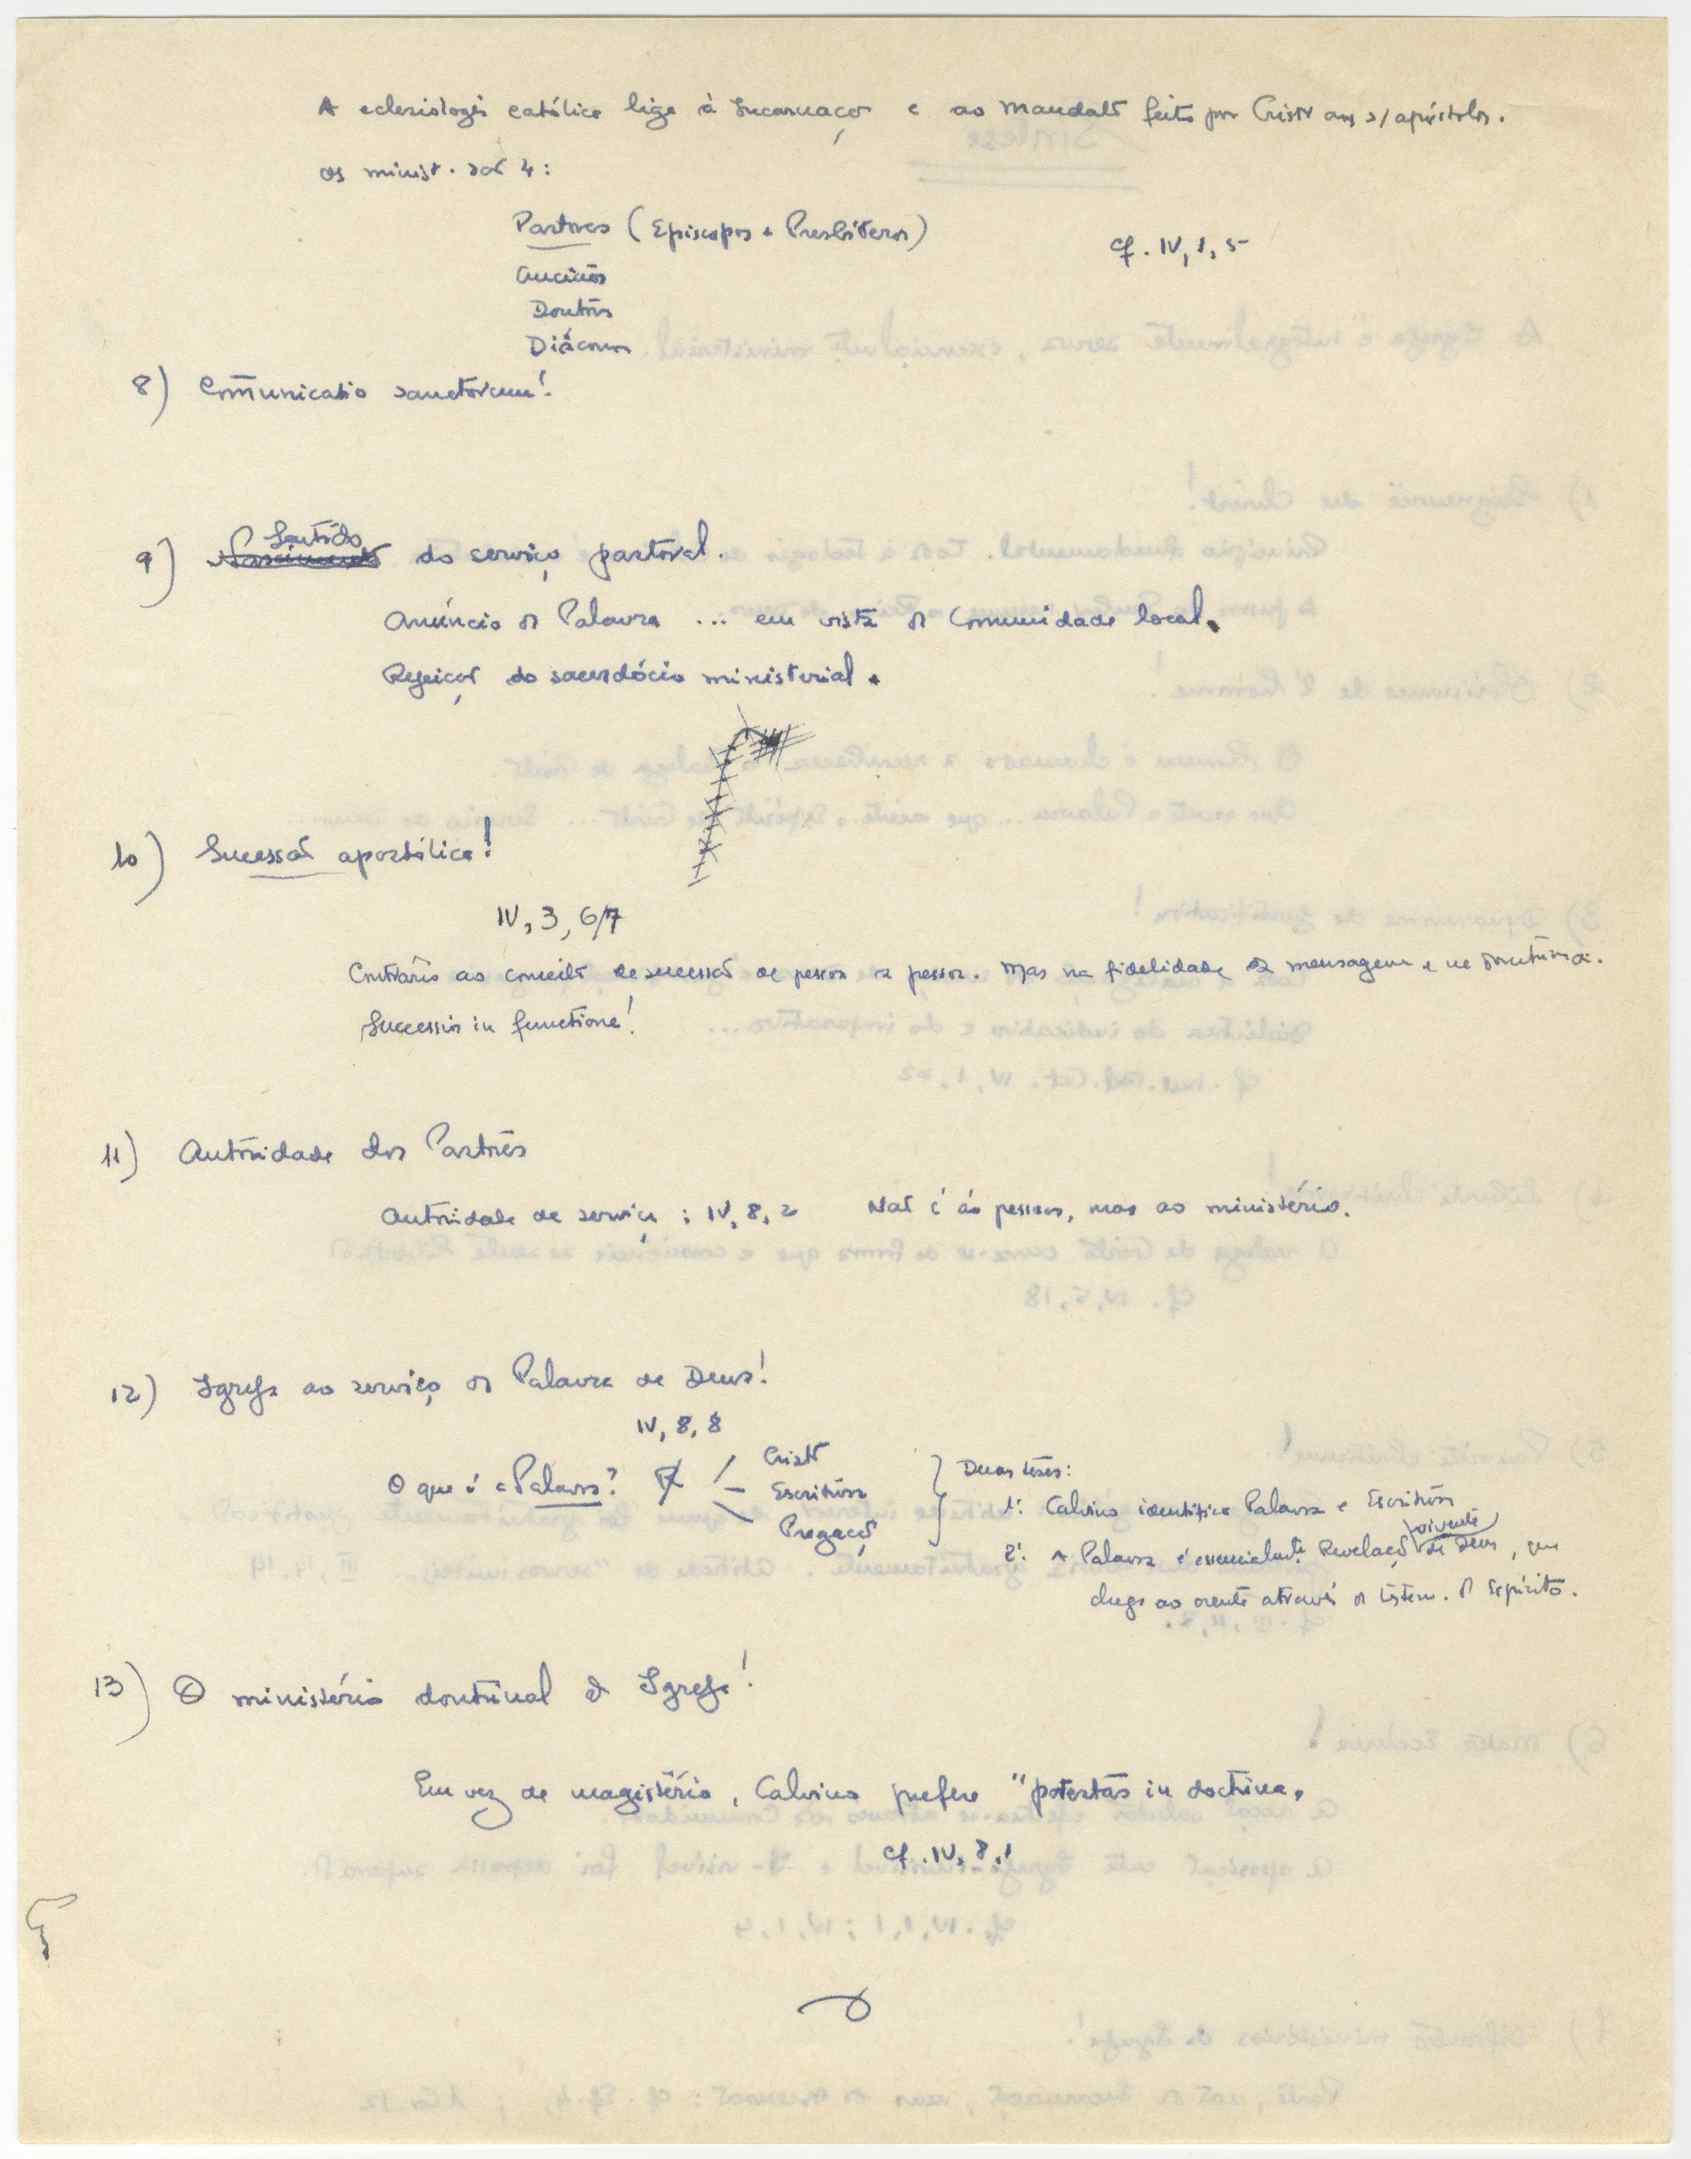 A eclesiologia católica liga à Incarnação e ao mandato feito por Cristo aos s/ apóstolos.
Os minist. são 4:
Pastores (Episcopos e Presbíteros)
cf. IV, 1, 5
Anciãos
Doutores
Diáconos
8) Comunicatio sanctorum!
9) Sentido do serviço pastoral.
Anúncio da Palavra ... em vista da Comunidade local.
Rejeição do sacerdócio ministerial.
10) Sucessão apostólica!
IV, 3, 6/7
Contrário ao conceito de sucessão de pessoa a pessoa. Mas na fidelidade da mensagem e na doutrina.
Sucessio in functione!
11) Autoridade dos Pastores
Autoridade de serviço : IV, 8, 2 Não é às pessoas, mas ao ministério.
12) Igreja ao serviço da Palavra de Deus!
IV, 8, 8
O que é a Palavra? R/
Cristo
Escritura
Pregação
Duas teses:
1ª: Calvino identifica Palavra e Escritura
2ª: A Palavra é essencialmente Revelação vivente de Deus, que
chega ao crente através do testem. do Espírito.
13) O ministério doutrinal da Igreja!
Em vez de magistério, Calvino prefere "potestas in doctrina"
cf. IV, 8, 1